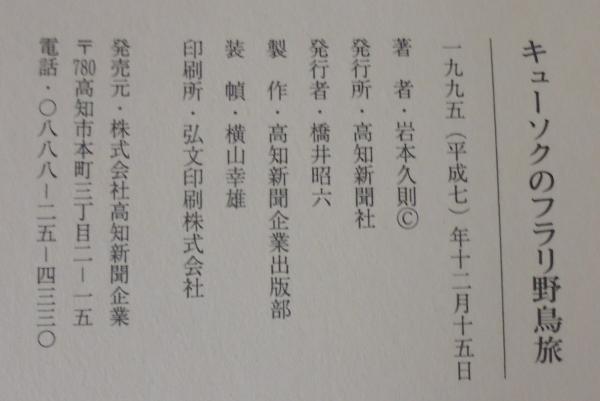 キューソクのフラリ野鳥旅
一九九五（平成七）年十二月十五日
著　者・岩本久則Ⓒ
発行所・高知新聞社
発行者・橋井昭六
製　作・高知新聞企業出版部
装　幀・横山幸雄
印刷所・弘文印刷株式会社
発売元・株式会社高知新聞企業
〒780高知市本町三丁目二－一五
電話・〇八八八－二五－四三三〇